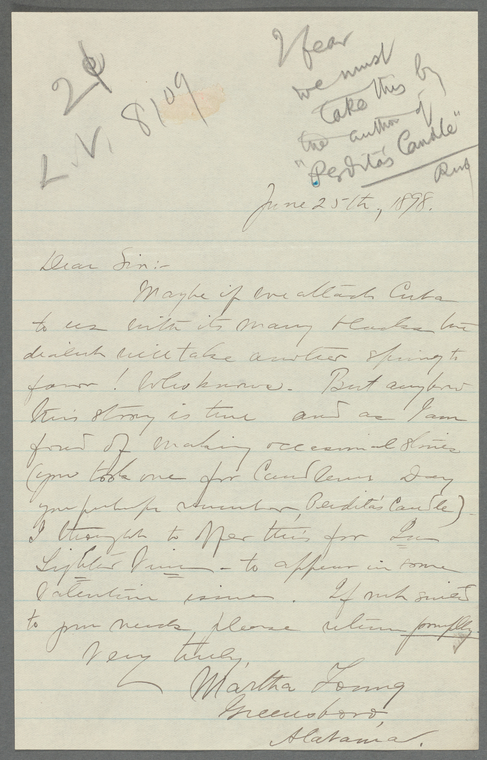 2¢
L.V. 8109
I fear
we must
take this by
the author of
"Perdita's Candle"
June 25th, 1898.
Dear Sir:-
Maybe if we attach Cuba
to us with its many blacks the
dialect will take another spring to
favor! Who knows. But anyhow
this story is true and as I am
fond of making occasional stories
(you took one for Candlemas Day
you perhaps remember, Perdita's Candle)
I thought to offer this for In
Lighter Vein - to appear in some
Valentine issue. If not suited
to your needs please return promptly.
Very truly,
Martha Young
Greensboro,
Alabama.